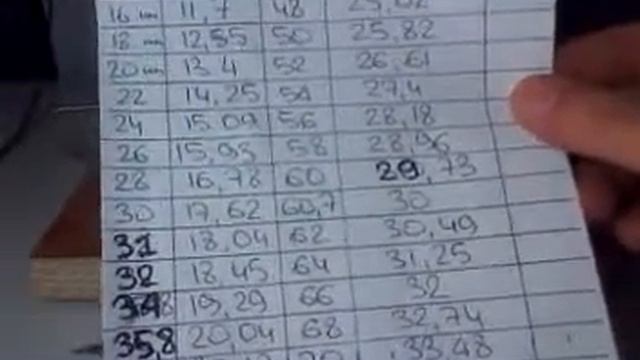 16 mm 11,7 48 25,02
18 mm 12,55 50 25,82
20 mm 13.4 52 26,61
22 14,25 54 27,4
24 15.09 56 28,18
26 15,93 58 28,96
28 16,78 60 29,73
30 17,62 60,7 30
31 18,04 62 30,49
32 18,45 64 31,25
34 19,29 66 32
35,8 20,04 68 32,74
70 33,48